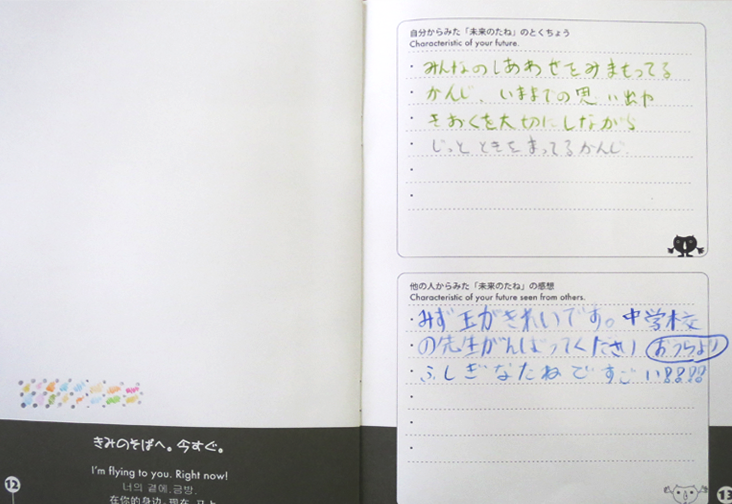 きみのそばへ。今すぐ。
I'm flying to you. Right now!
너의 곁에,금방.
在你的身边,现在,马上
12
自分からみた「未来のたね」のとくちょう
Characteristic of your future.
・みんなのしあわせをみまもってる
・かんじ、いままでの思い出や
・きおくを大切にしながら
・じっとときをまってるかんじ.
・
・
他の人からみた「未来のたね」の感想
Characteristic of your future seen from others.
・みず玉がきれいです。中学校
・の先生がんばってください
・ふしぎなたねですごい!!!!
・
・
・
13